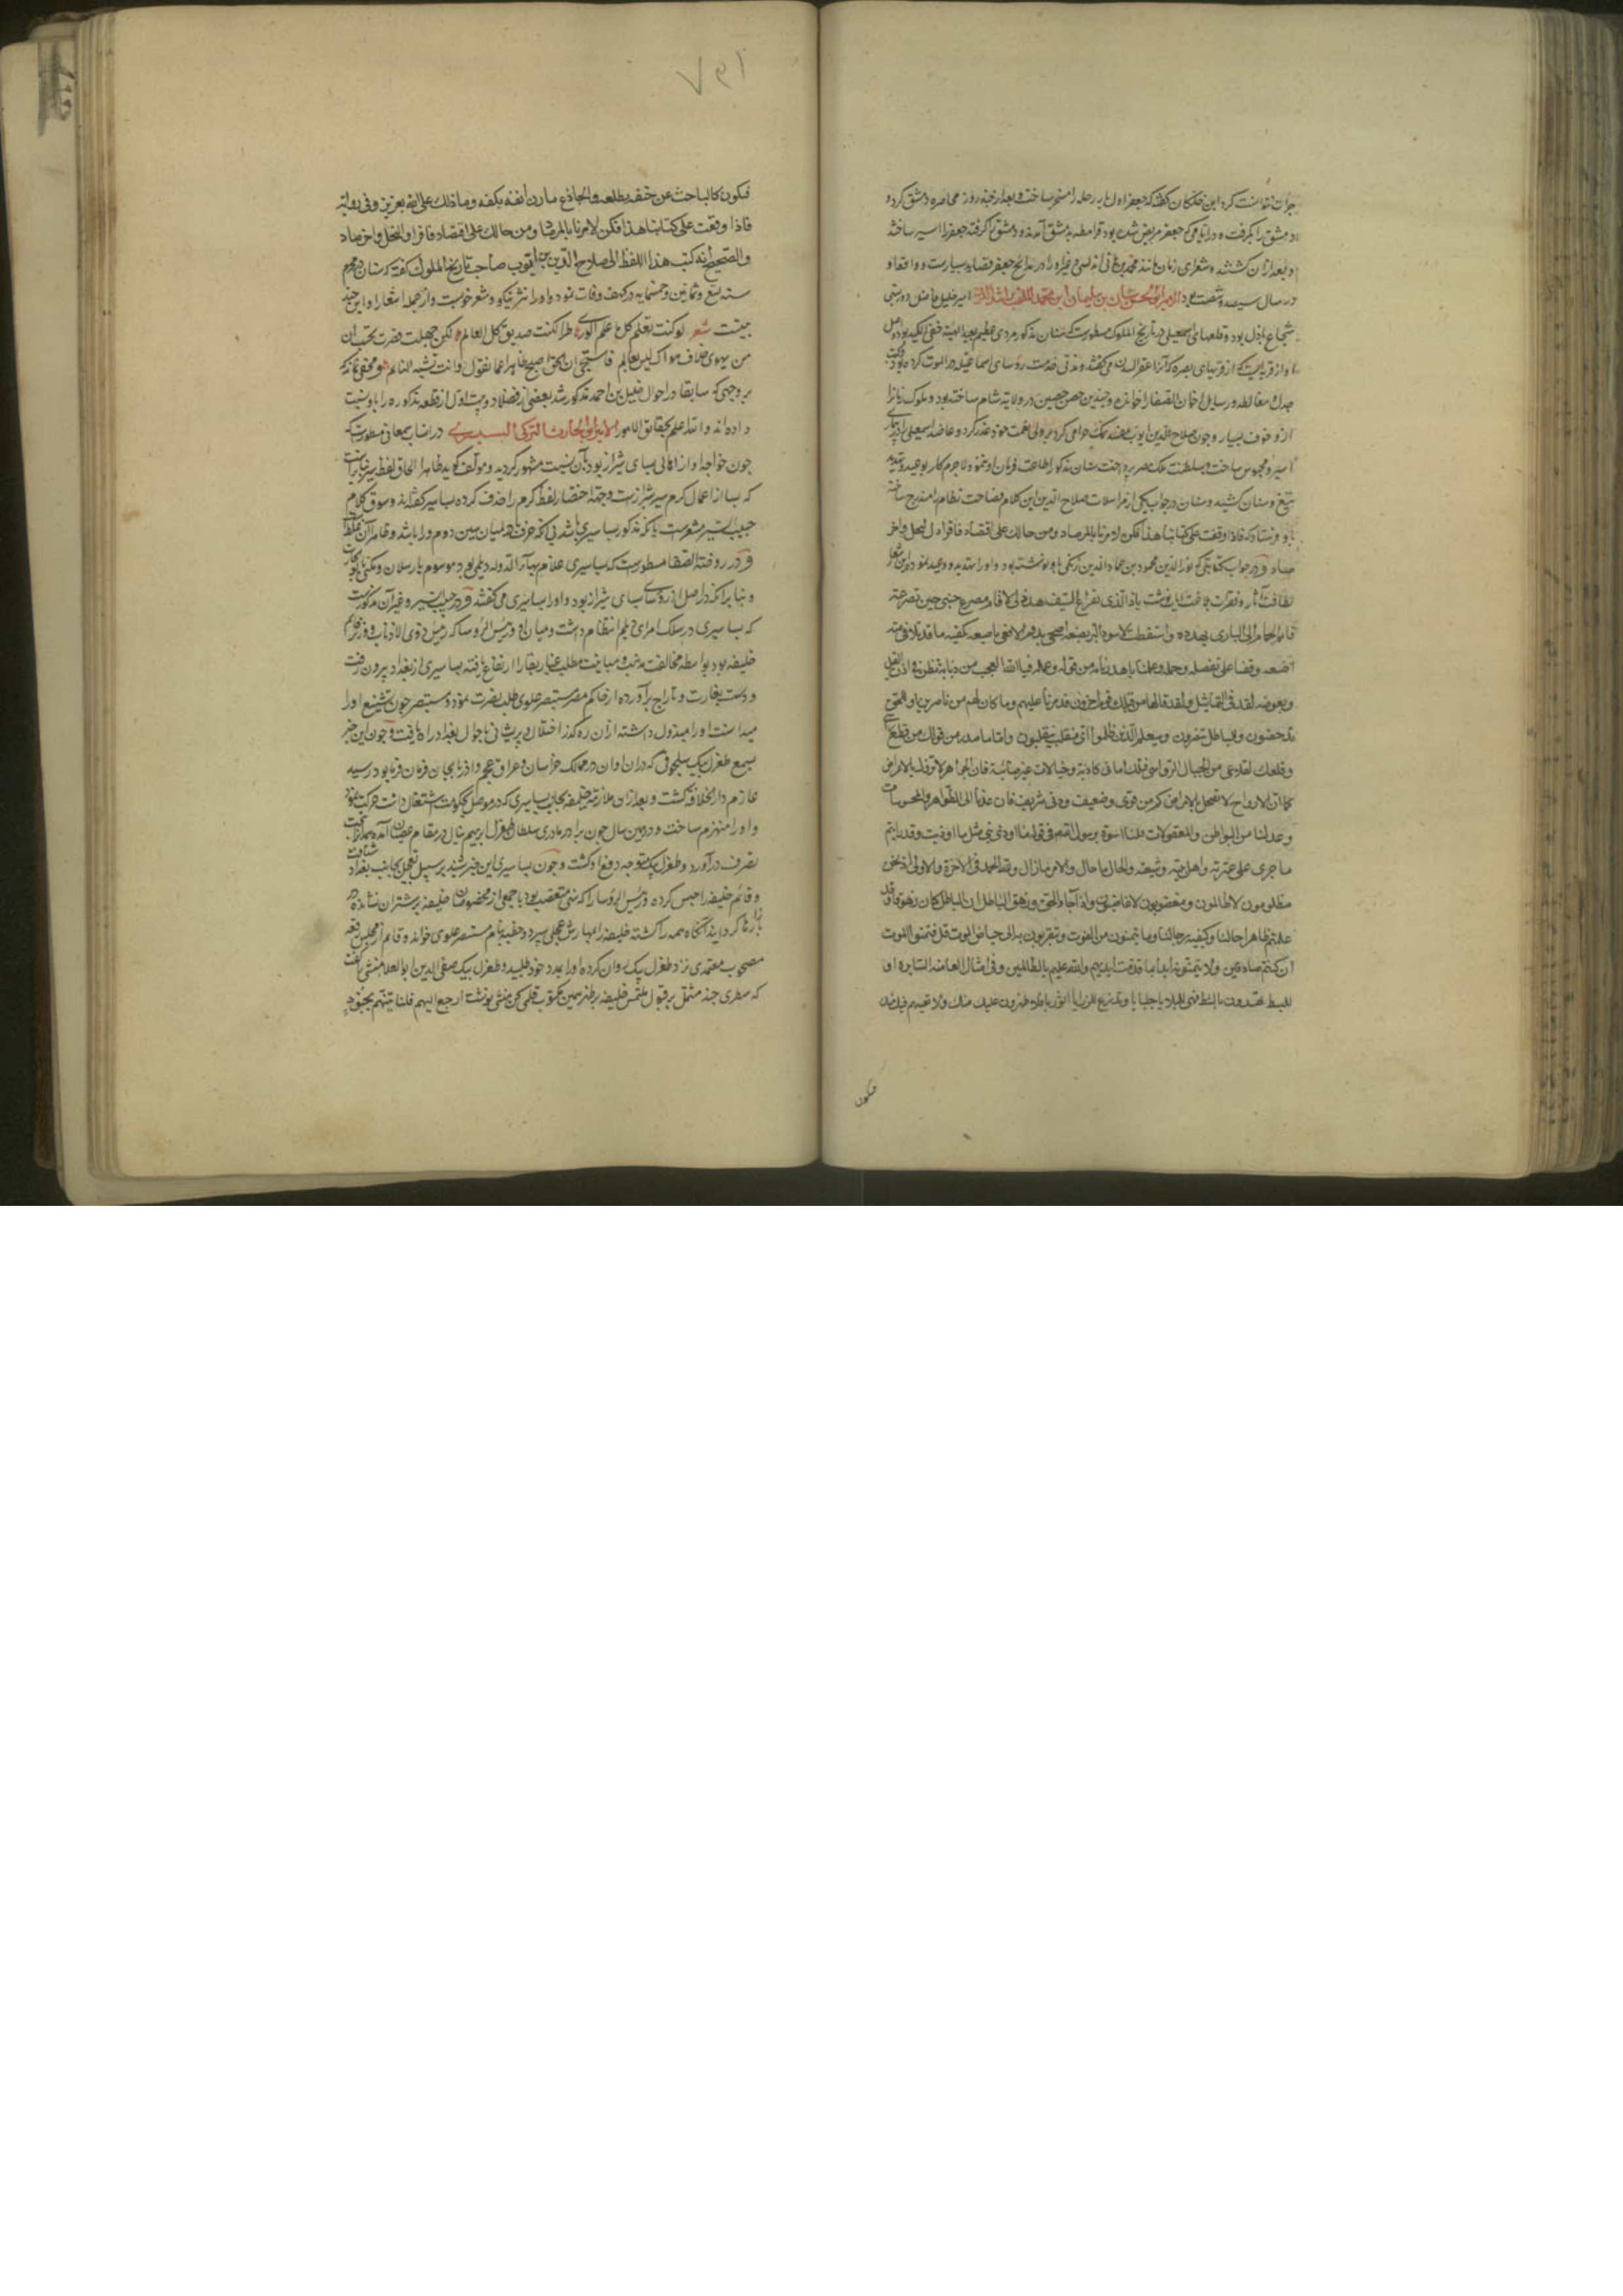 جرات نتوانست کرد ابن خلکان گفته که جعفر اول مایه رمله را مسخر ساخت و بعد از چند روز محاصره دمشق کرد و
دمشق را بگرفت و در ایامی که جعفر مریض شده بود قرامطه بدمشق آمدند و دمشق را گرفته جعفر را اسیر ساختند
و بعد از آن کشتند و شعرای زمان مانند محمد بن هانی اندلسی و غیر او را در مدایح جعفر قصاید بسیارست و واقعه او
در سال سیصد و شصت بود الامیر ابو الحسن سنان بن سلیمان ابن محمد الملقب براشد الدین امیر جلیل فاضل
شجاع باذل بود و قلعهای اسمعیلی در تاریخ الملوک مسطورست که سنان مذکور مردی عظیم بعید الهیئة خفی الکید بود و اصل
او از قریه ایست که از قریهای بصره که آنرا عقر السدن می گفتند و مدتی خدمت روسای اسماعیلیه در الموت کرده بود و کتب
جدل مغالطه و رسایل اخوان الصفا را خوانده و چندین حصن حصین در ولایة شام ساخته بود و ملوک نازا
ازو خوف بسیار و چون صلاح الدین ایوب نمک حرامی کرد بر ولی نعمت خود غدر کرد و عاضد اسمعیلی را
اسیر و محبوس ساخت و بسلطنت ملک مصر پرداخت سنان مذکور اطاعت فرمان او ننمود ولاجرم کار بوعید و تهدید
تیغ و سنان کشید و سنان در جواب یکی از مراسلات صلاح الدین این کلام فصاحت نظام را مندرج ساخت
باو فرستاد که فاذا وقفت علی کتابنا هذا فکن لامرنا بالمرصاد ومن حالک علی اقتصاد فاقرأ اول النحل واخر
صاد و در جواب کتابتی که نور الدین محمود بن عماد الدین زنکی باو نوشته بود و او را تهدید و وعید نموده این شعر
یاذا الذی بقراع السیف هددنا لا قام مصرع جنبی حین تصرعه
قام الحمام الی البازی یهدده واستیقظت لاسود البر اضبعه اضحی یسد فم الافعی باصبعه یکفیه ما قد تلاقی منه
اصبعه وقفنا علی تفصله وجمله وعلمنا ما هددنا به من قوله وعمله فیالله العجب من ذبابة تطن فی اذن الفیل
وبعوضه تعد فی التماثیل ولقد قالها من قبلک قوم اخرون فدمرنا علیهم وما کان لهم من ناصرین اوللحق
تدحضون وللباطل تنصرون وسیعلم الذین ظلموا ای منقلب ینقلبون واما ما صدر من قولک من قطع
وقلعک لقلاعی من الجبال الرواسی فتلک امانی کاذبة وخیالات غیر صائبة فان الجواهر لا تزول بالاعراض
کما ان الارواح لا تضمحل بالامراض کم من قوی وضعیف ودنی وشریف فان عدنا الی الظواهر والمحسوسات
وعدلنا من البواطن والمعقولات فلنا اسوة برسول الله فی قوله ما اوذی نبی مثل ما اوذیت وقد رایتم
ما جری علی عترته واهل بیته وشیعته والحال ما حال والامر ما زال ولله الحمد فی الاخرة والاولی اذ نحن
مظلومون لا ظالمون ومغصوبون لا غاصبون واذا جاء الحق وزهق الباطل ان الباطل کان زهوقا وقد
علمتم ظاهر احوالنا وکیفیة رجالنا وما یتمنونه من الفوت ویتقربون به الی حیاض الموت قل فتمنوا الموت
ان کنتم صادقین ولا یتمنونه ابدا بما قدمت ایدیهم والله علیم بالظالمین وفی امثال العامه السایره او
للبط تهددون بالشط فهیئ للبلایا جلبابا وتدرع للرزایا اثوابا فلاظهرن علیک منک ولا
فیکون
۱۹۷
فیکون کالباحث عن حتفه بظلفه والجادع مارن انفه بکفه وما ذلک علی الله بعزیز وفی روایة
فاذا وقفت علی کتابنا هذا فکن لامرنا بالمرصاد ومن حالک علی اقتصاد فاقرأ اول النحل واخر صاد
والصحیح انه کتب هذا اللفظ الی صلاح الدین بن ایوب صاحب تاریخ الملوک گفته که سنان در محرم
سنه تسع وثمانین وخمسمایه در کهف وفات نمود و او را نثر نیکو و شعر خوبست و از جمله اشعار او این چند
بیتست شعر لو کنت تعلم کل ما علم الوری طرا لکنت صدیق کل العالم لکن جهلت فصرت تحسب ان
من یهوی خلاف هواک لیس بعالم فاستحی ان الحق اصبح ظاهرا عما تقول وانت شبه النائم و مخفی نماند که
بر وجهی که سابقا در احوال خلیل بن احمد مذکور شد بعضی از فضلا دو بیت اول از قطعه مذکوره را باو نسبت
داده اند والله اعلم بحقایق الامور الامیر ابو الحارث الترکی البساسیری در انساب سمعانی مسطورست که
چون خواجه او از اهالی بسای شیراز بود بآن نسبت مشهور گردید و مولف گوید ظاهرا الحاق لفظ سیر بنا برآنست
که بسا از اعمال گرم سیر شیرازست و جهة اختصار لفظ گرم را حذف کرده بساسیر گفته اند و سوق کلام
حبیب السیر مشعرست بآنکه مذکور بساسیری باشد
و در روضة الصفا مسطورست که بساسیری غلام بهاء الدوله دیلمی بود موسوم بارسلان و مکنی بابو الحارث
و بنا برآنکه در اصل از روسای بسای شیراز بود او را بساسیری می گفتند و در حبیب السیر و غیر آن مذکورست
که بساسیری در سلک امرای دیلم انتظام داشت و میان او و رئیس الروسا که رئیس ذوی الاذناب و وزیر قائم
خلیفه بود بواسطه مخالفت مذهب و مباینت مطلب غبار نقار ارتفاع یافته بساسیری از بغداد بیرون رفت
و دست بغارت و تاراج برآورده از حاکم مصر مستنصر علوی طلب نصرت نمود و مستنصر چون تشیع او را
میدانست او را مبذول داشته از آن رهگذر اختلال و پریشانی باحوال بغداد راه یافت و چون این خبر
بسمع طغرل بیک سلجوقی که در آن اوان در ممالک خراسان و عراق عجم و اذربایجان فرمان فرما بود رسید
عازم دار الخلافه گشت و بعد از آن ملازمة خلیفه بجانب بساسیری که در موصل بحکومت اشتغال داشت حرکت نمود
و او را منهزم ساخت و در همین سال چون برادر مادری سلطان طغرل ابرهیم ینال در مقام عصیان آمده همدان را بتحت
تصرف درآورد و طغرل بیک متوجه دفع او گشت و چون بساسیری این خبر شنید بر سبیل تعجیل بجانب بغداد شتافت
و قائم خلیفه را حبس کرده و رئیس الروسا را که سنی متعصب بود با جمعی از مخصوصان خلیفه بر شتران نشانده در
بازارها گردانید آنگاه همه را کشته خلیفه را بمهارش عجلی سپرد و خطبه بنام مستنصر علوی خواند و قائم از مجلس رقعه
مصحوب معتمدی نزد طغرل بیک روان کرده او را بمدد خود طلبید و طغرل بیک صفی الدین ابو العلا منشی را گفت
که سطری چند مشتمل بر قبول ملتمس خلیفه بر ظهر همین مکتوب قلمی کن منشی نوشت ارجع الیهم فلناتینهم بجنود